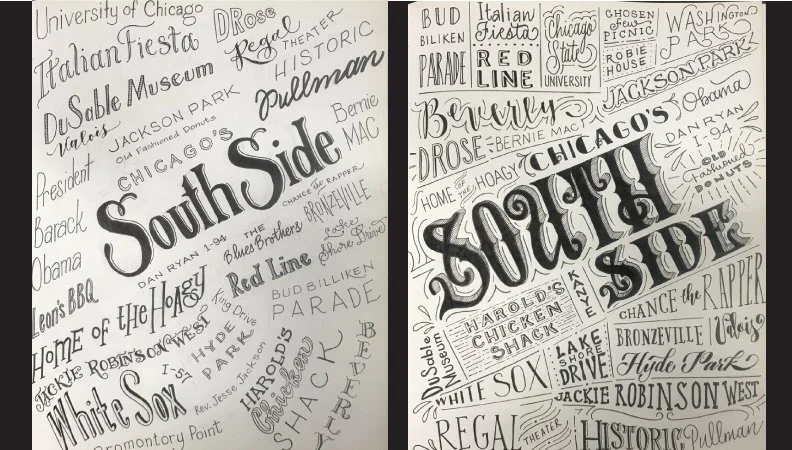 University of Chicago
DRose
Italian Fiesta
Regal
THEATER
HISTORIC
DuSable Museum
Pullman
Valois
JACKSON PARK
Old Fashioned Donuts
Bernie
MAC
CHICAGO'S
South Side
President
Barack
Obama
CHANCE the RAPPER
BRONZEVILLE
DAN RYAN 1-94
THE
Blues Brothers
Lake
Shore Drive
Leon's BBQ
Red Line
HOME OF the HOAGY
BUD BILLIKEN
PARADE
King Drive
JACKIE ROBINSON WEST
HYDE
PARK
I-57
White Sox
Rev. Jesse Jackson
HAROLD'S
Chicken
SHACK
BEVERLY
Promontory Point
BUD
BILLIKEN
PARADE
Italian
Fiesta
RED
LINE
Chicago
State
UNIVERSITY
CHOSEN
few
PICNIC
ROBIE
HOUSE
WASHINGTON
PARK
JACKSON PARK
Beverly
Obama
DROSE
BERNIE MAC
HOME OF THE HOAGY
CHICAGO'S
DAN RYAN
I-94
OLD
Fashioned
DONUTS
SOUTH
SIDE
KANYE
HAROLD'S
CHICKEN
SHACK
CHANCE the RAPPER
DuSable
Museum
LAKE
SHORE
DRIVE
BRONZEVILLE
Valois
Hyde Park
WHITE SOX
JACKIE ROBINSON WEST
REGAL
THEATER
HISTORIC Pullman